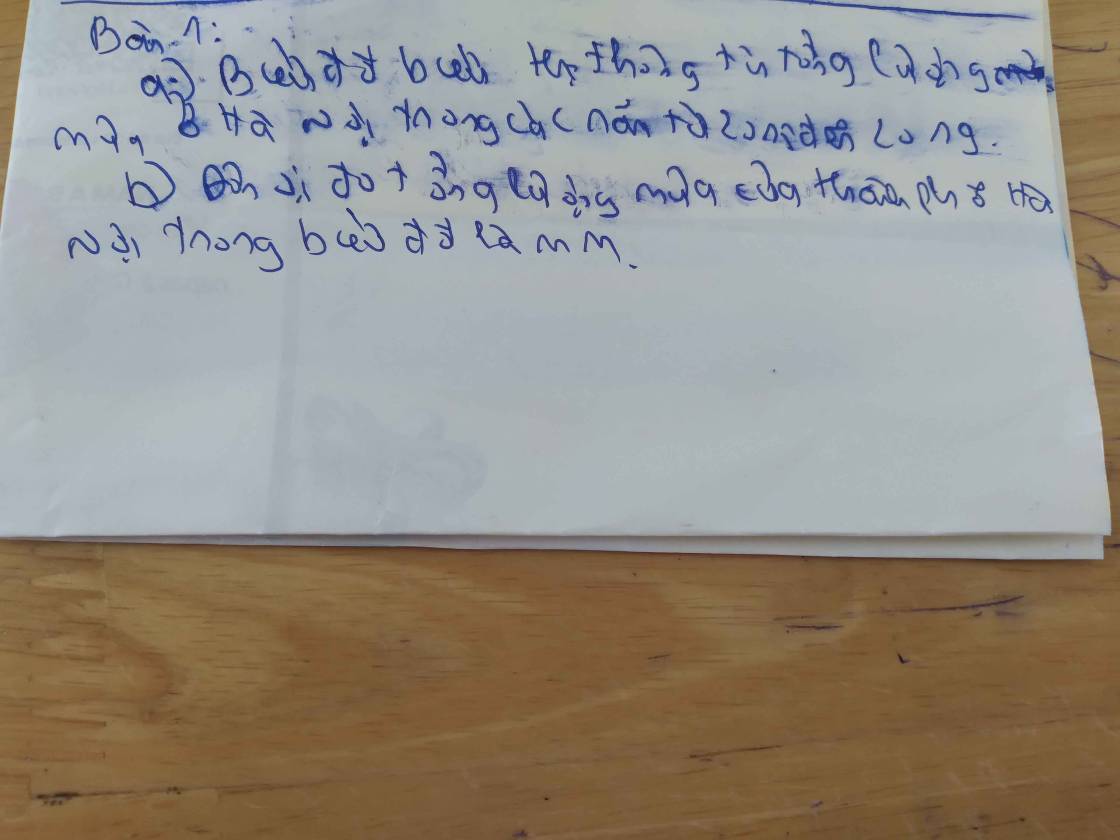 Bài 1:
a) Biểu đồ biểu thị thông tin tổng lượng
mưa ở Hà Nội trong các năm từ đến
b) Đơn vị đo tổng lượng mưa của thành phố Hà
Nội trong biểu đồ là mm.